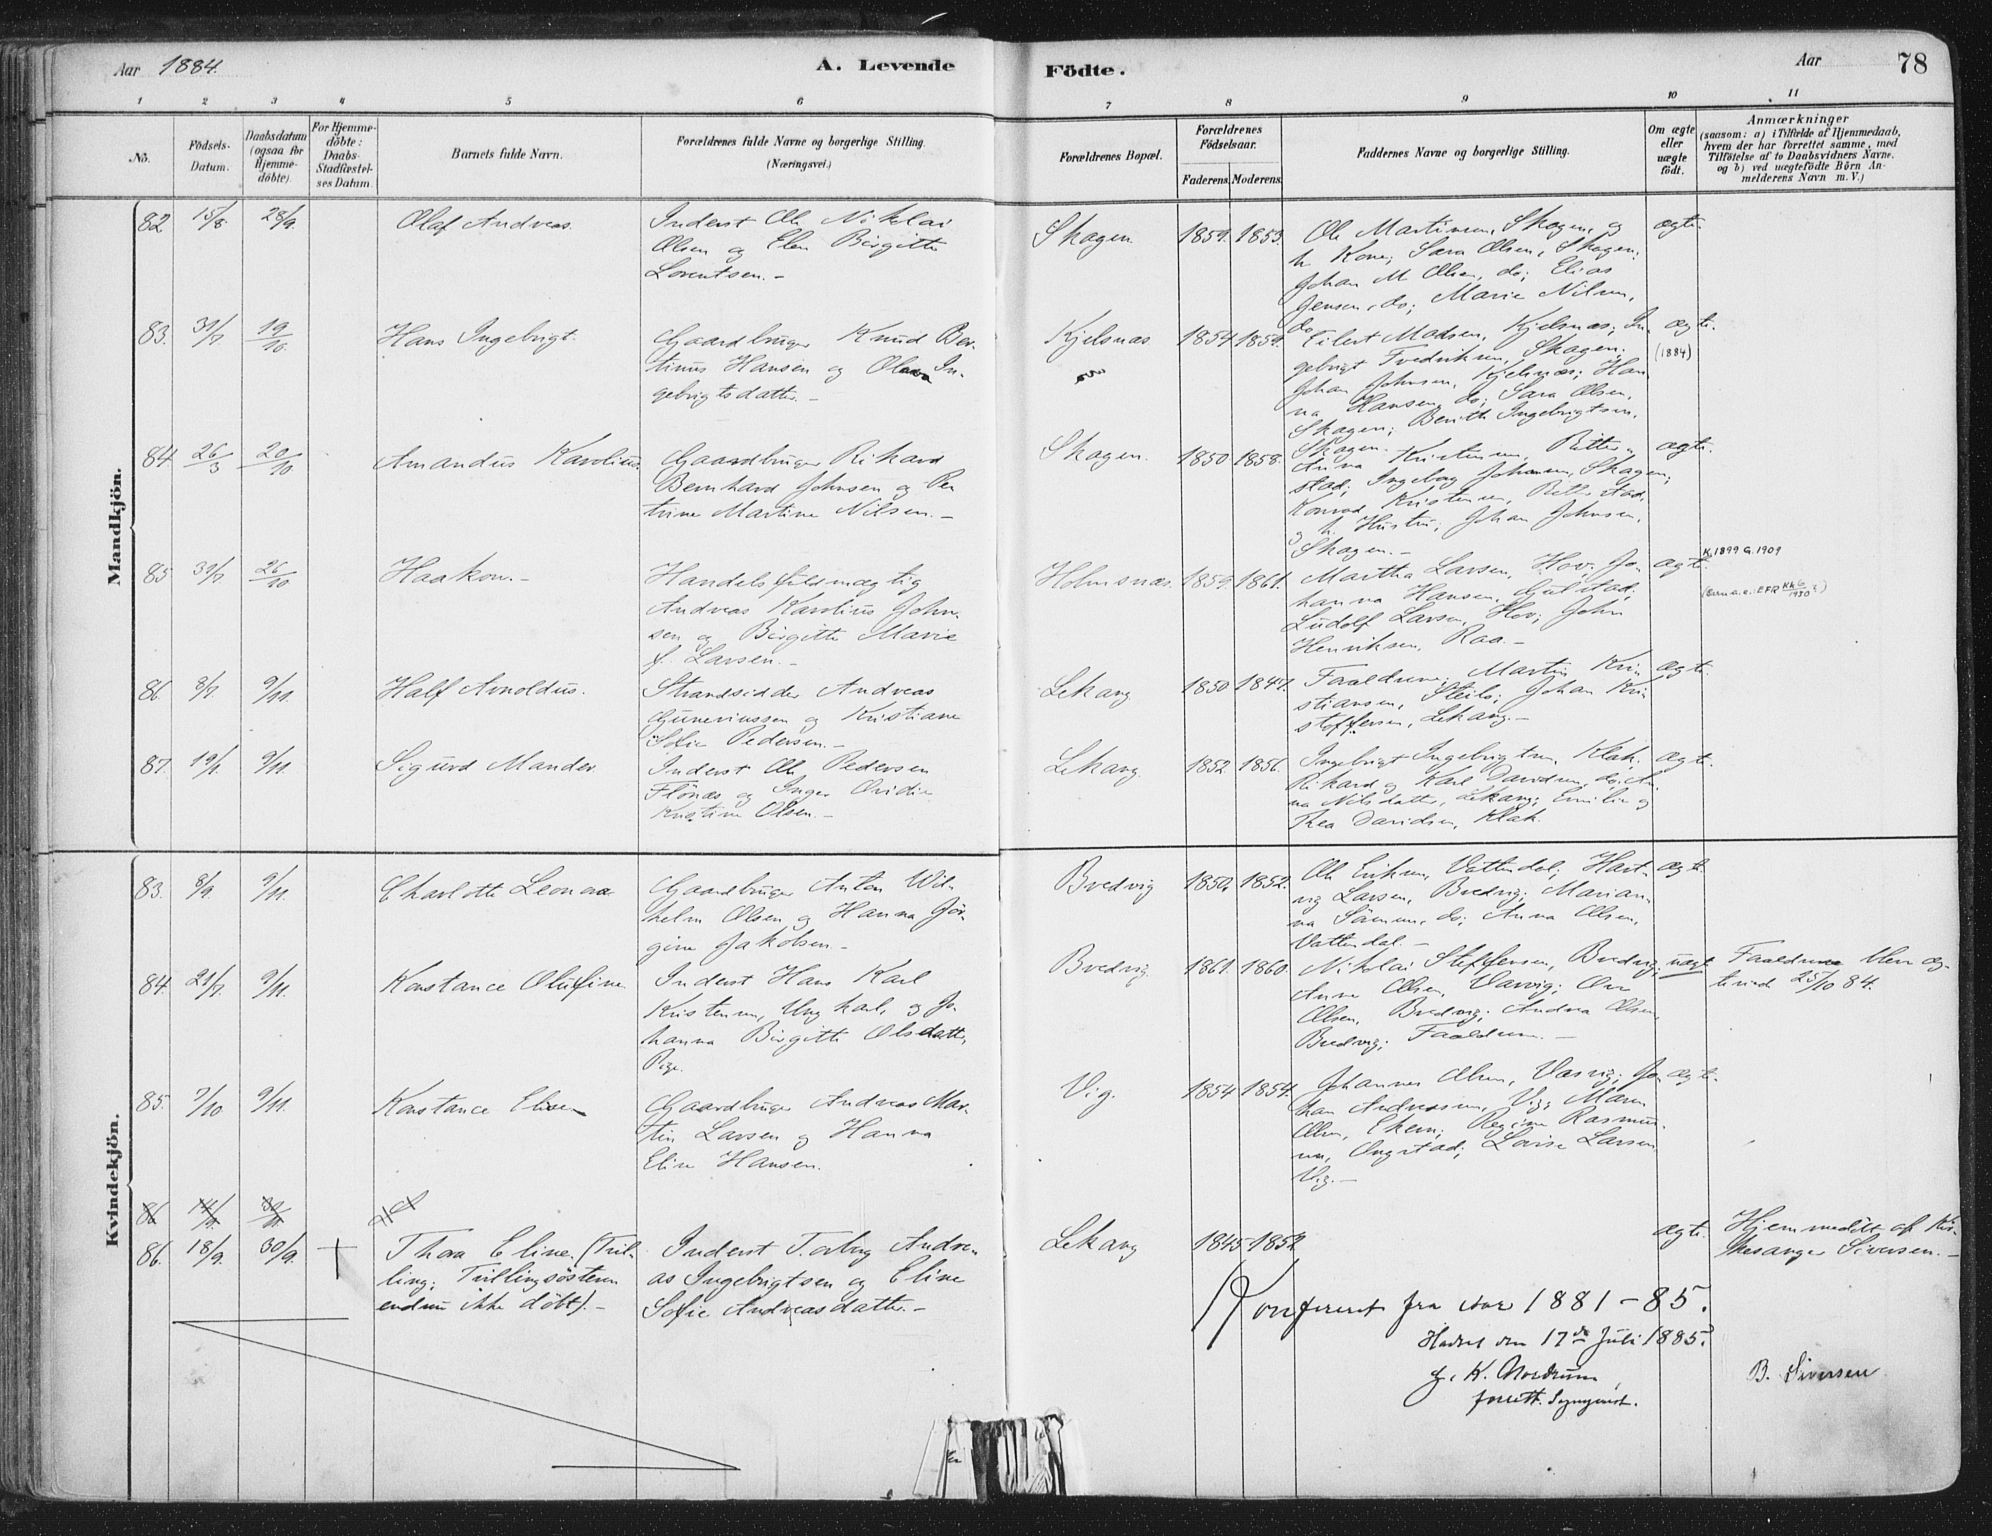 Aar 1884.
A. Levende
Födte.
Aar
78
1 2 3 4 5 6 7 8 9 10 11
No.
Födsels-
Datum.
Daabsdatum
(ogsaa for
Hjemme-
döbte).
For Hjemme-
döbte:
Daabs-
Stadfæstel-
ses Datum.
Barnets fulde Navn.
Forældrenes fulde Navne og borgerlige Stilling.
(Næringsvei.)
Forældrenes Bopæl.
Forældrenes
Födselsaar.
Faderens. Moderens.
Faddernes Navne og borgerlige Stilling.
Om ægte
eller
uægte
födt.
Anmærkninger
(saasom: a) i Tilfælde af Hjemmedaab,
hvem der har forrettet samme, med
Tilföielse af to Daabsvidners Navne,
og b) ved uægtefödte Börn An-
melderens Navn m. V.)
Mandkjön.
82 15/8 28/9. Olaf Andreas.
Inderst Ole Nikolai
Olsen og Elen Birgitte
Lorentsen. -
Skagen 1859. 1853.
Ole Martinsen, Skagen, og
h. Kone; Sara Olsen, Skagen;
Johan M Olsen, do; Elias
Jensen, do; Marie Nilsen,
do
ægte.
83. 31/7 19/10. Hans Ingebrigt.
Gaardbruger Knud Ber-
tinus Hansen og Olava In-
gebrigtsdatter. -
Kjelsnæs 1854 1859.
Eilert Madsen, Kjelsnæs; In-
gebrigt Fredriksen, Skagen.
Johan Johnsen, Kjelsnæs; Han-
na Hansen, do; Sara Olsen,
Skagen; Berith Ingebrigtsen,
Skagen.
ægte.
(1884)
84 26/3 20/10 Amandus Karolius.
Gaardbruger Rikard
Bernhard Johnsen og Pe-
trine Martine Nilsen. -
Skagen. 1850 1858.
Anna Kristensen, Ritter-
stad; Ingeborg Johansen, Skagen;
Konrad Kristensen, Ritterstad,
og h. Hustru; Johan Johnsen,
Skagen. -
ægte.
85 31/7 26/10 Haakon. -
Handelsfuldmægtig
Andreas Karolius John-
sen og Birgitte Marie
f. Larsen. -
Holmsnæs. 1859. 1861.
Martha Larsen, Hov. Jo-
hanna Hansen, Gulstad;
Ludolf Larsen, Hov; John
Henriksen, Raa. -
ægte.
K. 1899 G. 1909
86. 8/7. 9/11. Half Arnoldus.
Strandsidder Andreas
Guneriussen og Kristiane
Sofie Pedersen. -
Lekang 1850 1847.
Forældrene; Martin Kri-
stiansen, Steilo; Johan Kri-
stoffersen, Lekang. -
ægte.
87. 9/11. Sigurd Mander.
Inderst Ole Pedersen
Flönæs og Inger Ovidie
Kristine Olsen. -
Lekang 1852. 1856.
Ingebrigt Ingebrigtsen, Klak;
Rikard og Karl Davidsen, do; An-
na Nilsdatter, Lekang; Emilie og
Thea Davidsen, Klak.
ægte.
Kvindekjön.
83. 8/9. 9/11. Charlotte Leonora
Gaardbruger Anton Wil-
helm Olsen og Hanna Jör-
gine Jakobsen -
Bredvig 1850. 1852.
Ole Eriksen, Vattendal; Hart-
vig Larsen, Bredvig; Marian-
na Simonsen, do; Anna Olsen,
Vattendal. -
ægte
84. 21/7. 9/11. Konstance Olufine
Inderst Hans Karl
Kristensen, Ungkarl, og Jo-
hanna Birgitte Olsdatter,
Pige.
Bredvig. 1861. 1860.
Nikolai Steffensen, Bredvig;
Anne Olsen, Vasvig; Ove
Olsen, Bredvig; Andrea Olsen,
Bredvig; Forældrene. -
uægt.
Forældrene blev æg-
teviet 25/10 84.
85. 7/10 9/11. Konstance Elise
Gaardbruger Andreas Mar-
tin Larsen og Hanna
Eline Hansen.
Vig. 1854 1854.
Johannes Olsen, Vasvig; Jo-
han Andreassen, Vig; Maren
Olsen, Ekern; Regine Rasmus-
sen, Ongstad; Lovise Larsen
Vig. -
ægte.
86
86. 18/9. 30/9. † Thora Eline. (Tvil-
ling; Tvillingsösteren
endnu ikke döbt). -
Inderst Torberg Andre-
as Ingebrigtsen og Eline
Sofie Andreasdatter. -
Lekang 1845 1852
ægte.
Hjemmedöbt af Kir-
kesanger Siversen. -
Konfereret fra Aar 1881-85.
Hadsel den 17de Juli 1885.
J. K. Nordrum,
B. Siversen